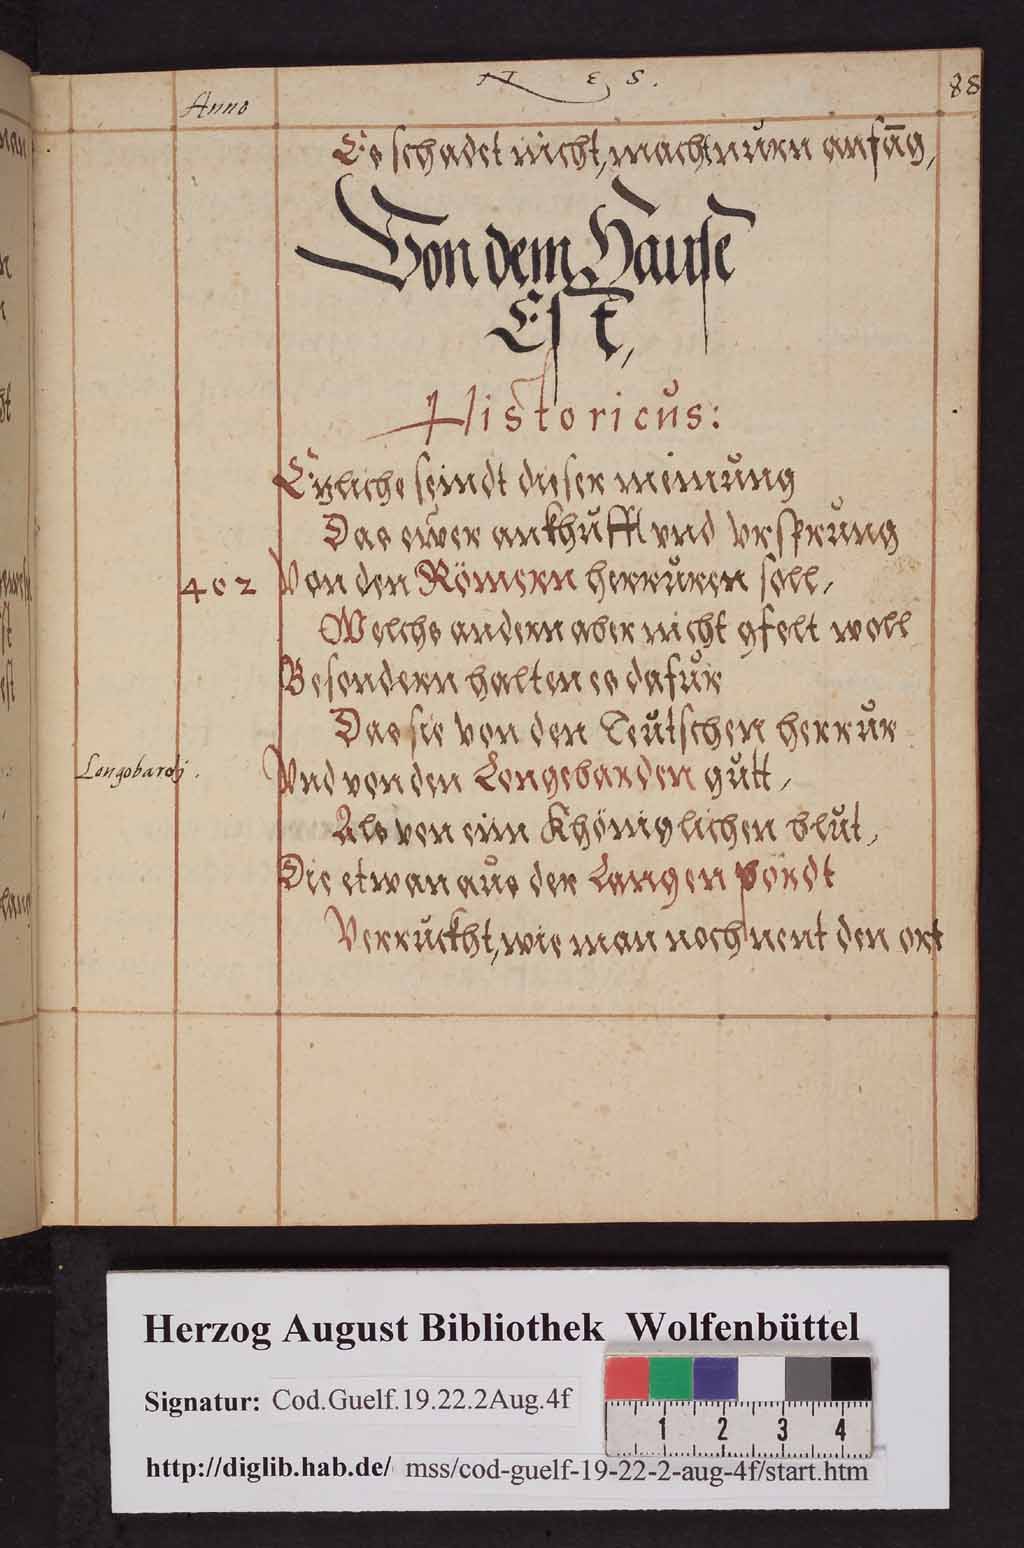 NES.
88
Anno
Es schadet nicht, macht nůrn anfāg,
Von dem Hause
Est,
Historicůs:
Etzliche seindt dieser meinůng
Das ewer ankhůfft vnd Vrsprůng
402 Von den Römern herrůren soll,
Welchs andern aber nicht gfelt woll
Besondern halten es dafůr
Das sie von den Teůtschen herrůr
Longobardj. Vnd von den Longobarden gůtt,
Als von eim Khöniglichen blůt,
Die etwan aůs der Langen Pördt
Verrůckht, wie man noch nent den ort
Herzog August Bibliothek Wolfenbüttel
Signatur: Cod.Guelf.19.22.2Aug.4f
1 2 3 4
http://diglib.hab.de/ mss/cod-guelf-19-22-2-aug-4f/start.htm